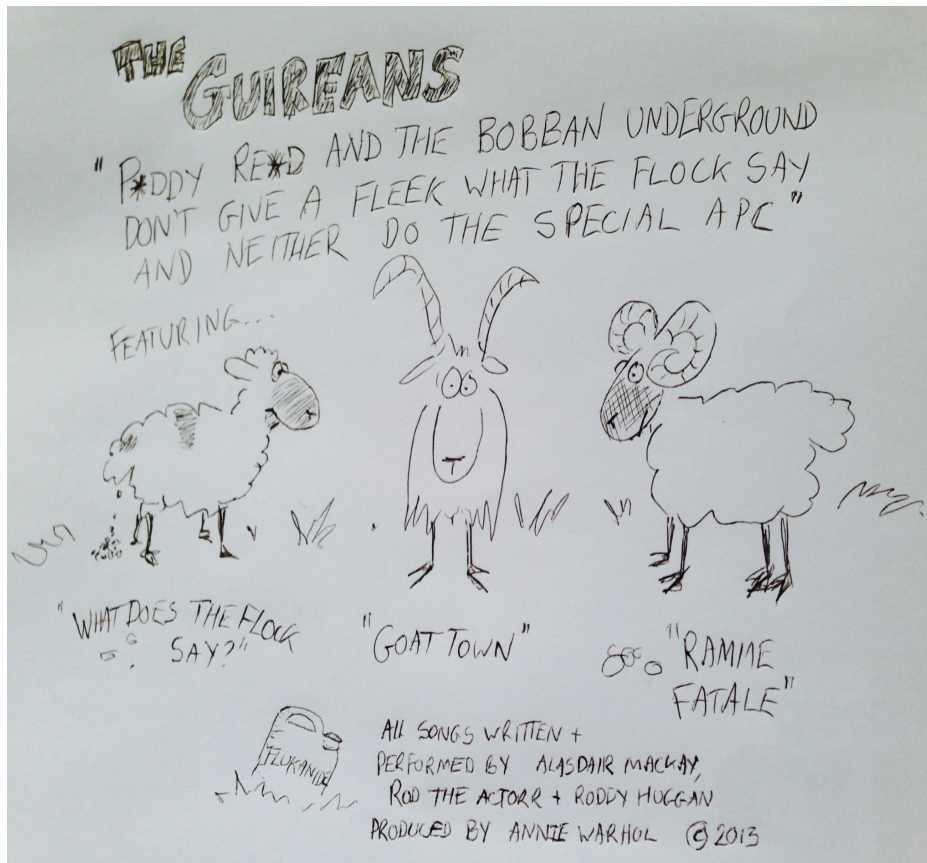 THE GUIREANS
"P*DDY RE*D AND THE BOBBAN UNDERGROUND
DON'T GIVE A FLEEK WHAT THE FLOCK SAY
AND NEITHER DO THE SPECIAL APC"
FEATURING...
"WHAT DOES THE FLOCK
SAY?"
"GOAT TOWN"
"RAMME
FATALE"
FLUKANIDE
ALL SONGS WRITTEN +
PERFORMED BY ALASDAIR MACKAY,
ROD THE ACTORR + RODDY HUGGAN
PRODUCED BY ANNIE WARHOL © 2013